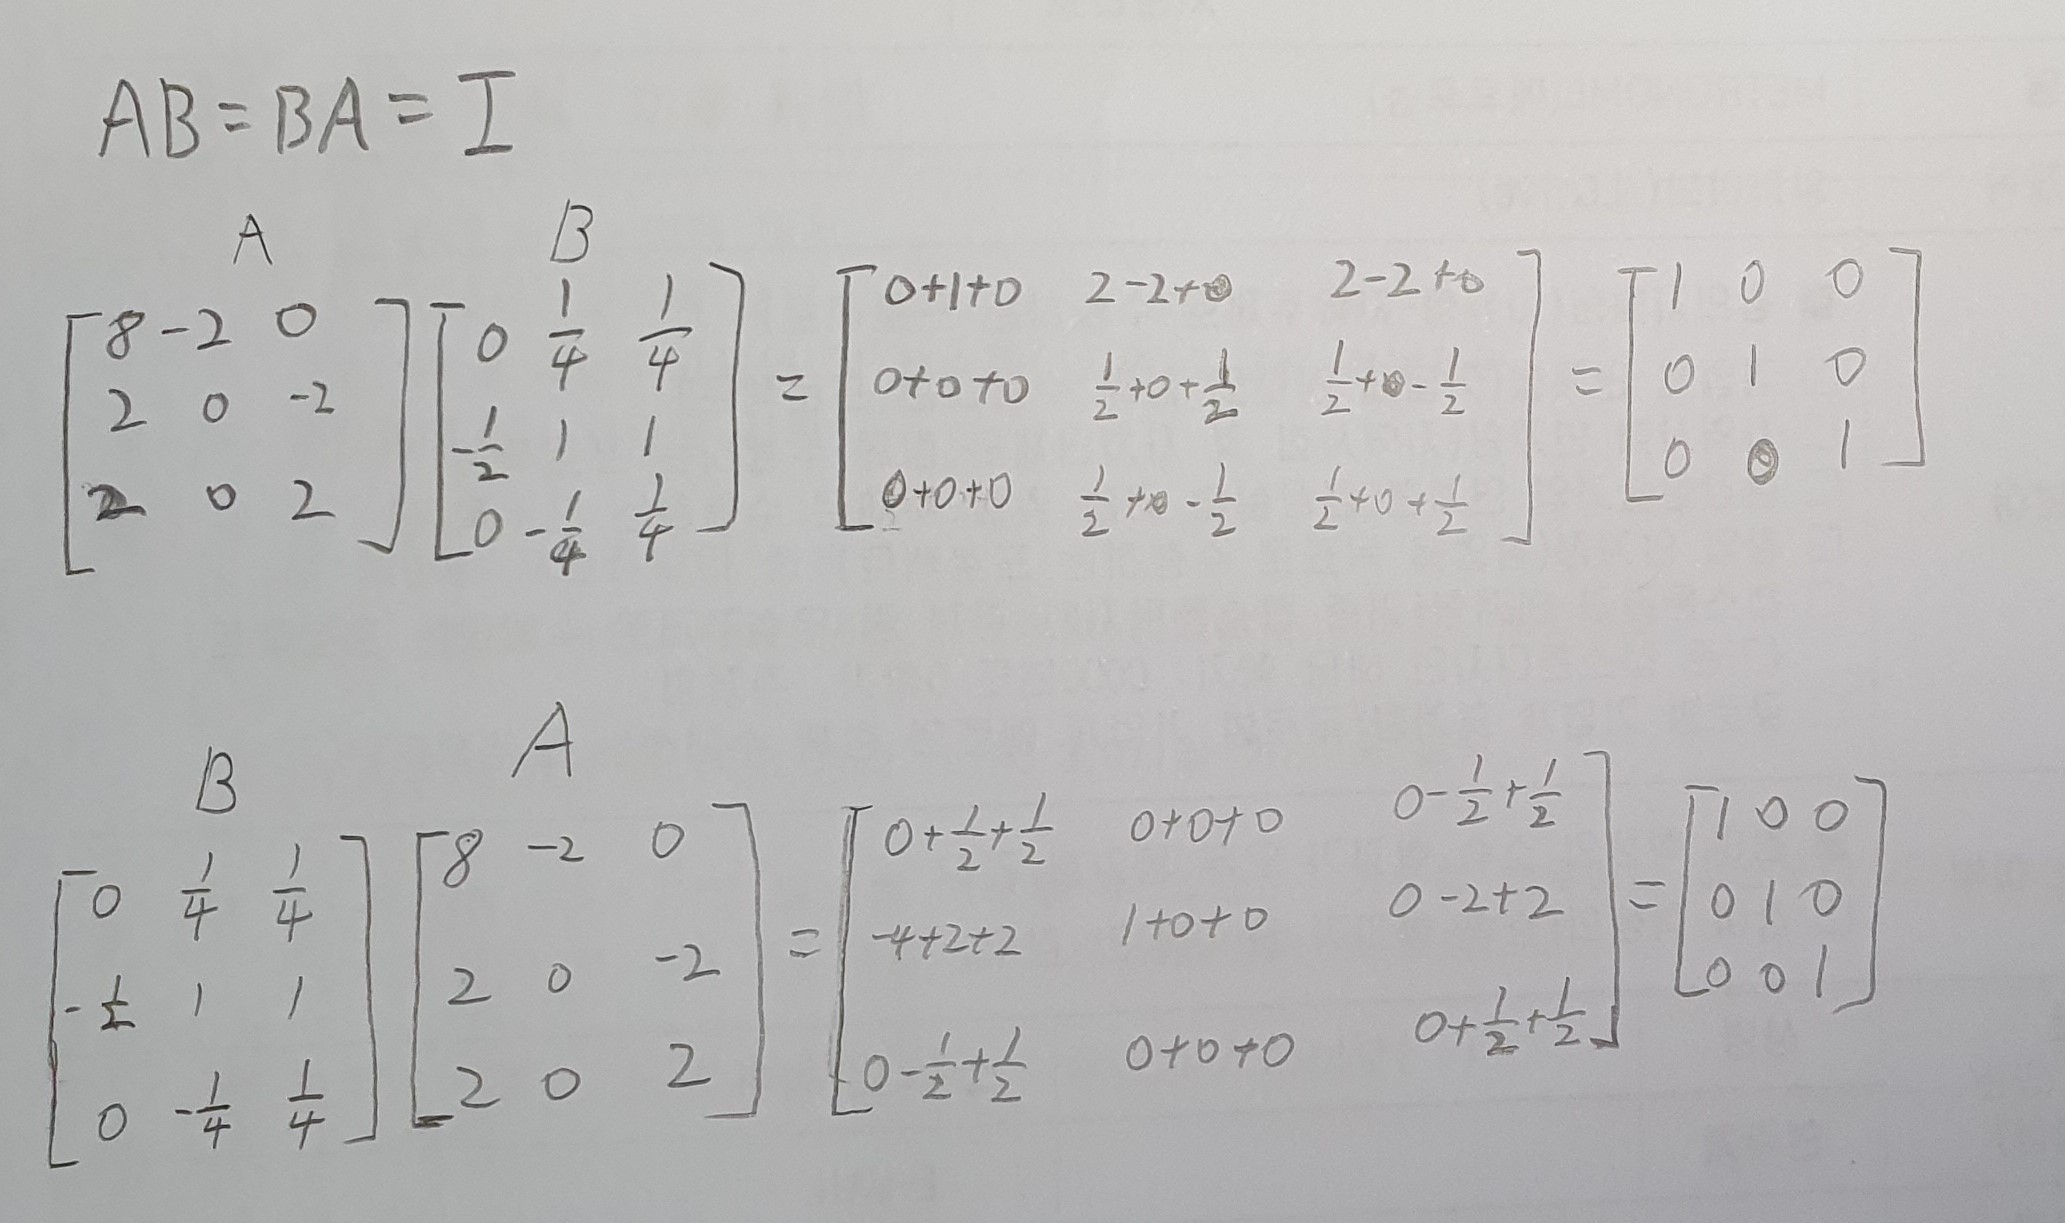 AB = BA = I
A B
[8 -2 0; 2 0 -2; 2 0 2] [0 1/4 1/4; -1/2 1 1; 0 -1/4 1/4] = [0+1+0 2-2+0 2-2+0; 0+0+0 1/2+0+1/2 1/2+0-1/2; 0+0+0 1/2+0-1/2 1/2+0+1/2] = [1 0 0; 0 1 0; 0 0 1]
B A
[0 1/4 1/4; -1/2 1 1; 0 -1/4 1/4] [8 -2 0; 2 0 -2; 2 0 2] = [0+1/2+1/2 0+0+0 0-1/2+1/2; -4+2+2 1+0+0 0-2+2; 0-1/2+1/2 0+0+0 0+1/2+1/2] = [1 0 0; 0 1 0; 0 0 1]